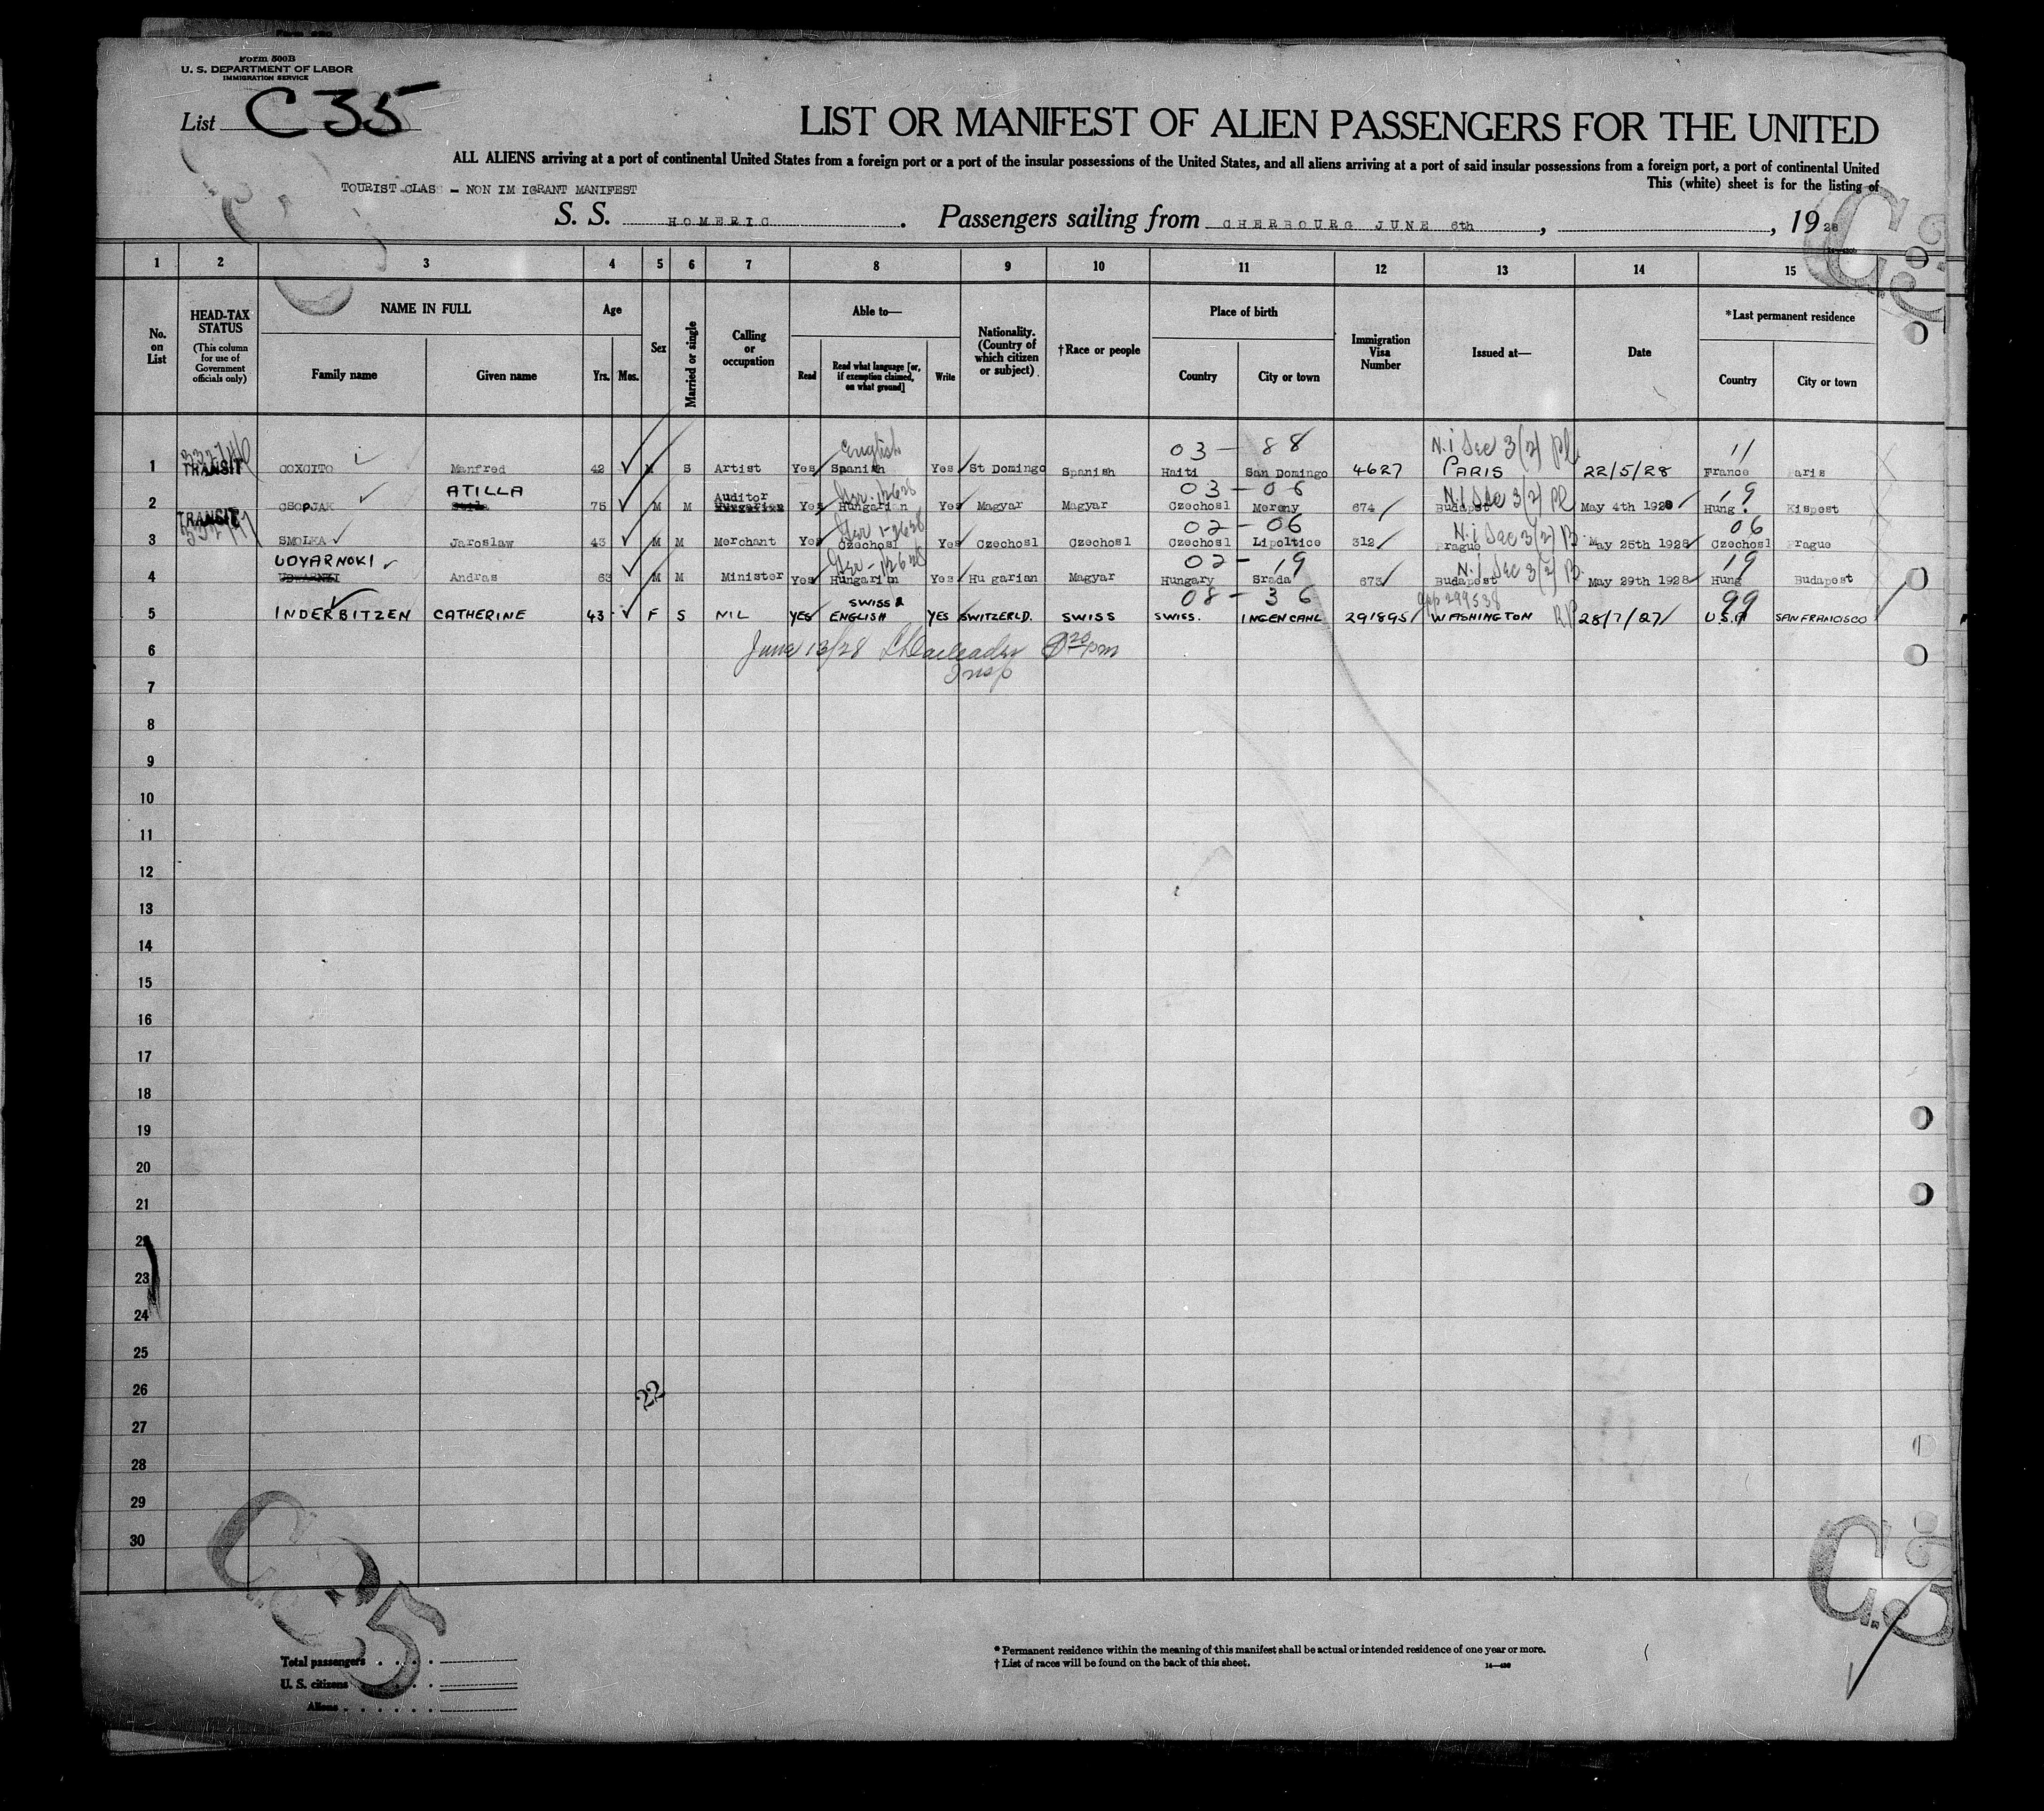 Form 500B
U. S. DEPARTMENT OF LABOR
IMMIGRATION SERVICE
List C 35
LIST OR MANIFEST OF ALIEN PASSENGERS FOR THE UNITED
ALL ALIENS arriving at a port of continental United States from a foreign port or a port of the insular possessions of the United States, and all aliens arriving at a port of said insular possessions from a foreign port, a port of continental United
This (white) sheet is for the listing of
TOURIST CLAS - NON IM IGRANT MANIFEST
S. S. HOMERIC. Passengers sailing from CHERBOURG JUNE 6th, , 1928
1 2 3 4 5 6 7 8 9 10 11 12 13 14 15
No. on List
HEAD-TAX STATUS (This column for use of Government officials only)
NAME IN FULL
Family name Given name
Age
Yrs. Mos.
Sex
Married or single
Calling or occupation
Able to—
Read Read what language [or, if exemption claimed, on what ground] Write
Nationality. (Country of which citizen or subject)
†Race or people
Place of birth
Country City or town
Immigration Visa Number
Issued at—
Date
*Last permanent residence
Country City or town
English 03 - 88 N.i Sec 3(2) Pl 11
1 TRANSIT COXCITO Manfred 42 M S Artist Yes Spanish Yes St Domingo Spanish Haiti San Domingo 4627 PARIS 22/5/28 France aris
ATILLA Auditor 03 - 06 N.i Sec 3(2) Pl 19
2 CSOPJAK 75 M M Yes Hungarian Yes Magyar Magyar Czechosl Mereny 674 Budapest May 4th 1928 Hung. Kispest
TRANSIT 02 - 06 N.i Sec 3(2) 06
3 SMOLKA Jaroslaw 43 M M Merchant Yes Czechosl Yes Czechosl Czechosl Czechosl Lipoltice 312 rague May 25th 1928 Czechosl rague
UDYARNOKI 02 - 19 N.i Sec 3(2) 19
4 Andras 63 M M Minister Yes Hungarian Yes Hu garian Magyar Hungary Srada 673 Budapest May 29th 1928 Hung Budapest
SWISS & 08 - 36 299538 99
5 INDERBITZEN CATHERINE 43 F S NIL YES ENGLISH YES SWITZERLD. SWISS SWISS. INGENCAHL 291895 WASHINGTON RP 28/7/27 U.S.A SAN FRANCISCO
6 June 13/28 8 20 pm
Insp
7
8
9
10
11
12
13
14
15
16
17
18
19
20
21
22
23
24
25
26
22
27
28
29
30
Total passengers
U. S. citizens
Aliens
* Permanent residence within the meaning of this manifest shall be actual or intended residence of one year or more.
† List of races will be found on the back of this sheet.